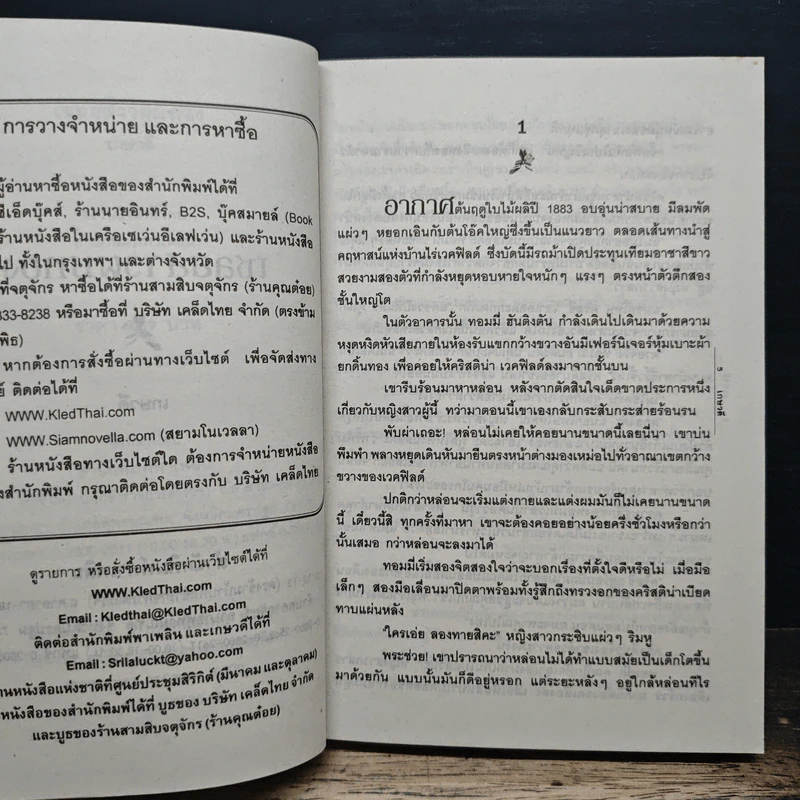 การวางจำหน่าย และการหาซื้อ
ผู้อ่านหาซื้อหนังสือของสำนักพิมพ์ได้ที่
ซีเอ็ดบุ๊คส์, ร้านนายอินทร์, B2S, บุ๊คสมายล์ (Book
ร้านหนังสือในเครือเซเว่นอีเลฟเว่น) และร้านหนังสือ
ไป ทั้งในกรุงเทพฯ และต่างจังหวัด
ที่จตุจักร หาซื้อได้ที่ร้านสามสิบจตุจักร (ร้านคุณต๋อย)
833-8238 หรือมาซื้อที่ บริษัท เคล็ดไทย จำกัด (ตรงข้าม
พิธ)
หากต้องการสั่งซื้อผ่านทางเว็บไซต์ เพื่อจัดส่งทาง
ย์ ติดต่อได้ที่
WWW.KledThai.com
WWW.Siamnovella.com (สยามโนเวลลา)
ร้านหนังสือทางเว็บไซต์ใด ต้องการจำหน่ายหนังสือ
งสำนักพิมพ์ กรุณาติดต่อโดยตรงกับ บริษัท เคล็ดไทย
ดูรายการ หรือสั่งซื้อหนังสือผ่านเว็บไซต์ได้ที่
WWW.KledThai.com
Email : Kledthai@KledThai.com
ติดต่อสำนักพิมพ์พาเพลิน และเกษวดีได้ที่
Email : Srilaluckt@yahoo.com
านหนังสือแห่งชาติที่ศูนย์ประชุมสิริกิติ์ (มีนาคม และตุลาคม)
หนังสือของสำนักพิมพ์ได้ที่ บูธของ บริษัท เคล็ดไทย จำกัด
และบูธของร้านสามสิบจตุจักร (ร้านคุณต๋อย)
1
อากาศต้นฤดูใบไม้ผลิปี 1883 อบอุ่นน่าสบาย มีลมพัด
แผ่วๆ หยอกเอินกับต้นโอ๊คใหญ่ซึ่งขึ้นเป็นแนวยาว ตลอดเส้นทางนำสู่
คฤหาสน์แห่งบ้านไร่เวคฟิลด์ ซึ่งบัดนี้มีรถม้าเปิดประทุนเทียมอาชาสีขาว
สวยงามสองตัวที่กำลังหยุดหอบหายใจหนักๆ แรงๆ ตรงหน้าตัวตึกสอง
ชั้นใหญ่โต
ในตัวอาคารนั้น ทอมมี่ ฮันติงตัน กำลังเดินไปเดินมาด้วยความ
หงุดหงิดหัวเสียภายในห้องรับแขกกว้างขวางอันมีเฟอร์นิเจอร์หุ้มเบาะผ้า
ยกดิ้นทอง เพื่อคอยให้คริสติน่า เวคฟิลด์ลงมาจากชั้นบน
เขารีบร้อนมาหาหล่อน หลังจากตัดสินใจเด็ดขาดประการหนึ่ง
เกี่ยวกับหญิงสาวผู้นี้ ทว่ามาตอนนี้เขาเองกลับกระสับกระส่ายร้อนรน
พับผ่าเถอะ! หล่อนไม่เคยให้คอยนานขนาดนี้เลยนี่นา เขาบ่น
พึมพำ พลางหยุดเดินหันมายืนตรงหน้าต่างมองเหม่อไปทั่วอาณาเขตกว้าง
ขวางของเวคฟิลด์
ปกติกว่าหล่อนจะเริ่มแต่งกายและแต่งผมมันก็ไม่เคยนานขนาด
นี้ เดี๋ยวนี้สิ ทุกครั้งที่มาหา เขาจะต้องคอยอย่างน้อยครึ่งชั่วโมงหรือกว่า
นั้นเสมอ กว่าหล่อนจะลงมาได้
ทอมมี่เริ่มสองจิตสองใจว่าจะบอกเรื่องที่ตั้งใจดีหรือไม่ เมื่อมือ
เล็กๆ สองมือเลื่อนมาปิดตาพร้อมทั้งรู้สึกถึงทรวงอกของคริสติน่าเบียด
ทาบแผ่นหลัง
"ใครเอ่ย ลองทายสิคะ" หญิงสาวกระซิบแผ่วๆ ริมหู
พระช่วย! เขาปรารถนาว่าหล่อนไม่ได้ทำแบบสมัยเป็นเด็กโตขึ้น
มาด้วยกัน แบบนั้นมันก็ดีอยู่หรอก แต่ระยะหลังๆ อยู่ใกล้หล่อนทีไร
5
เกษวดี